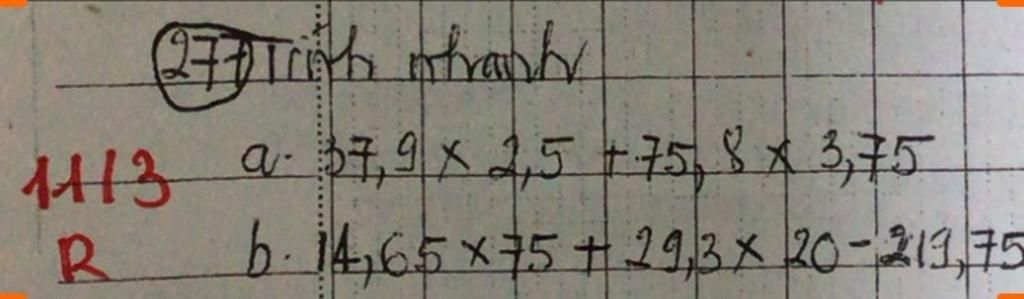 277 Tính nhanh
11/3 a. 37,9 x 2,5 + 75,8 x 3,75
R b. 14,65 x 75 + 29,3 x 20 - 219,75